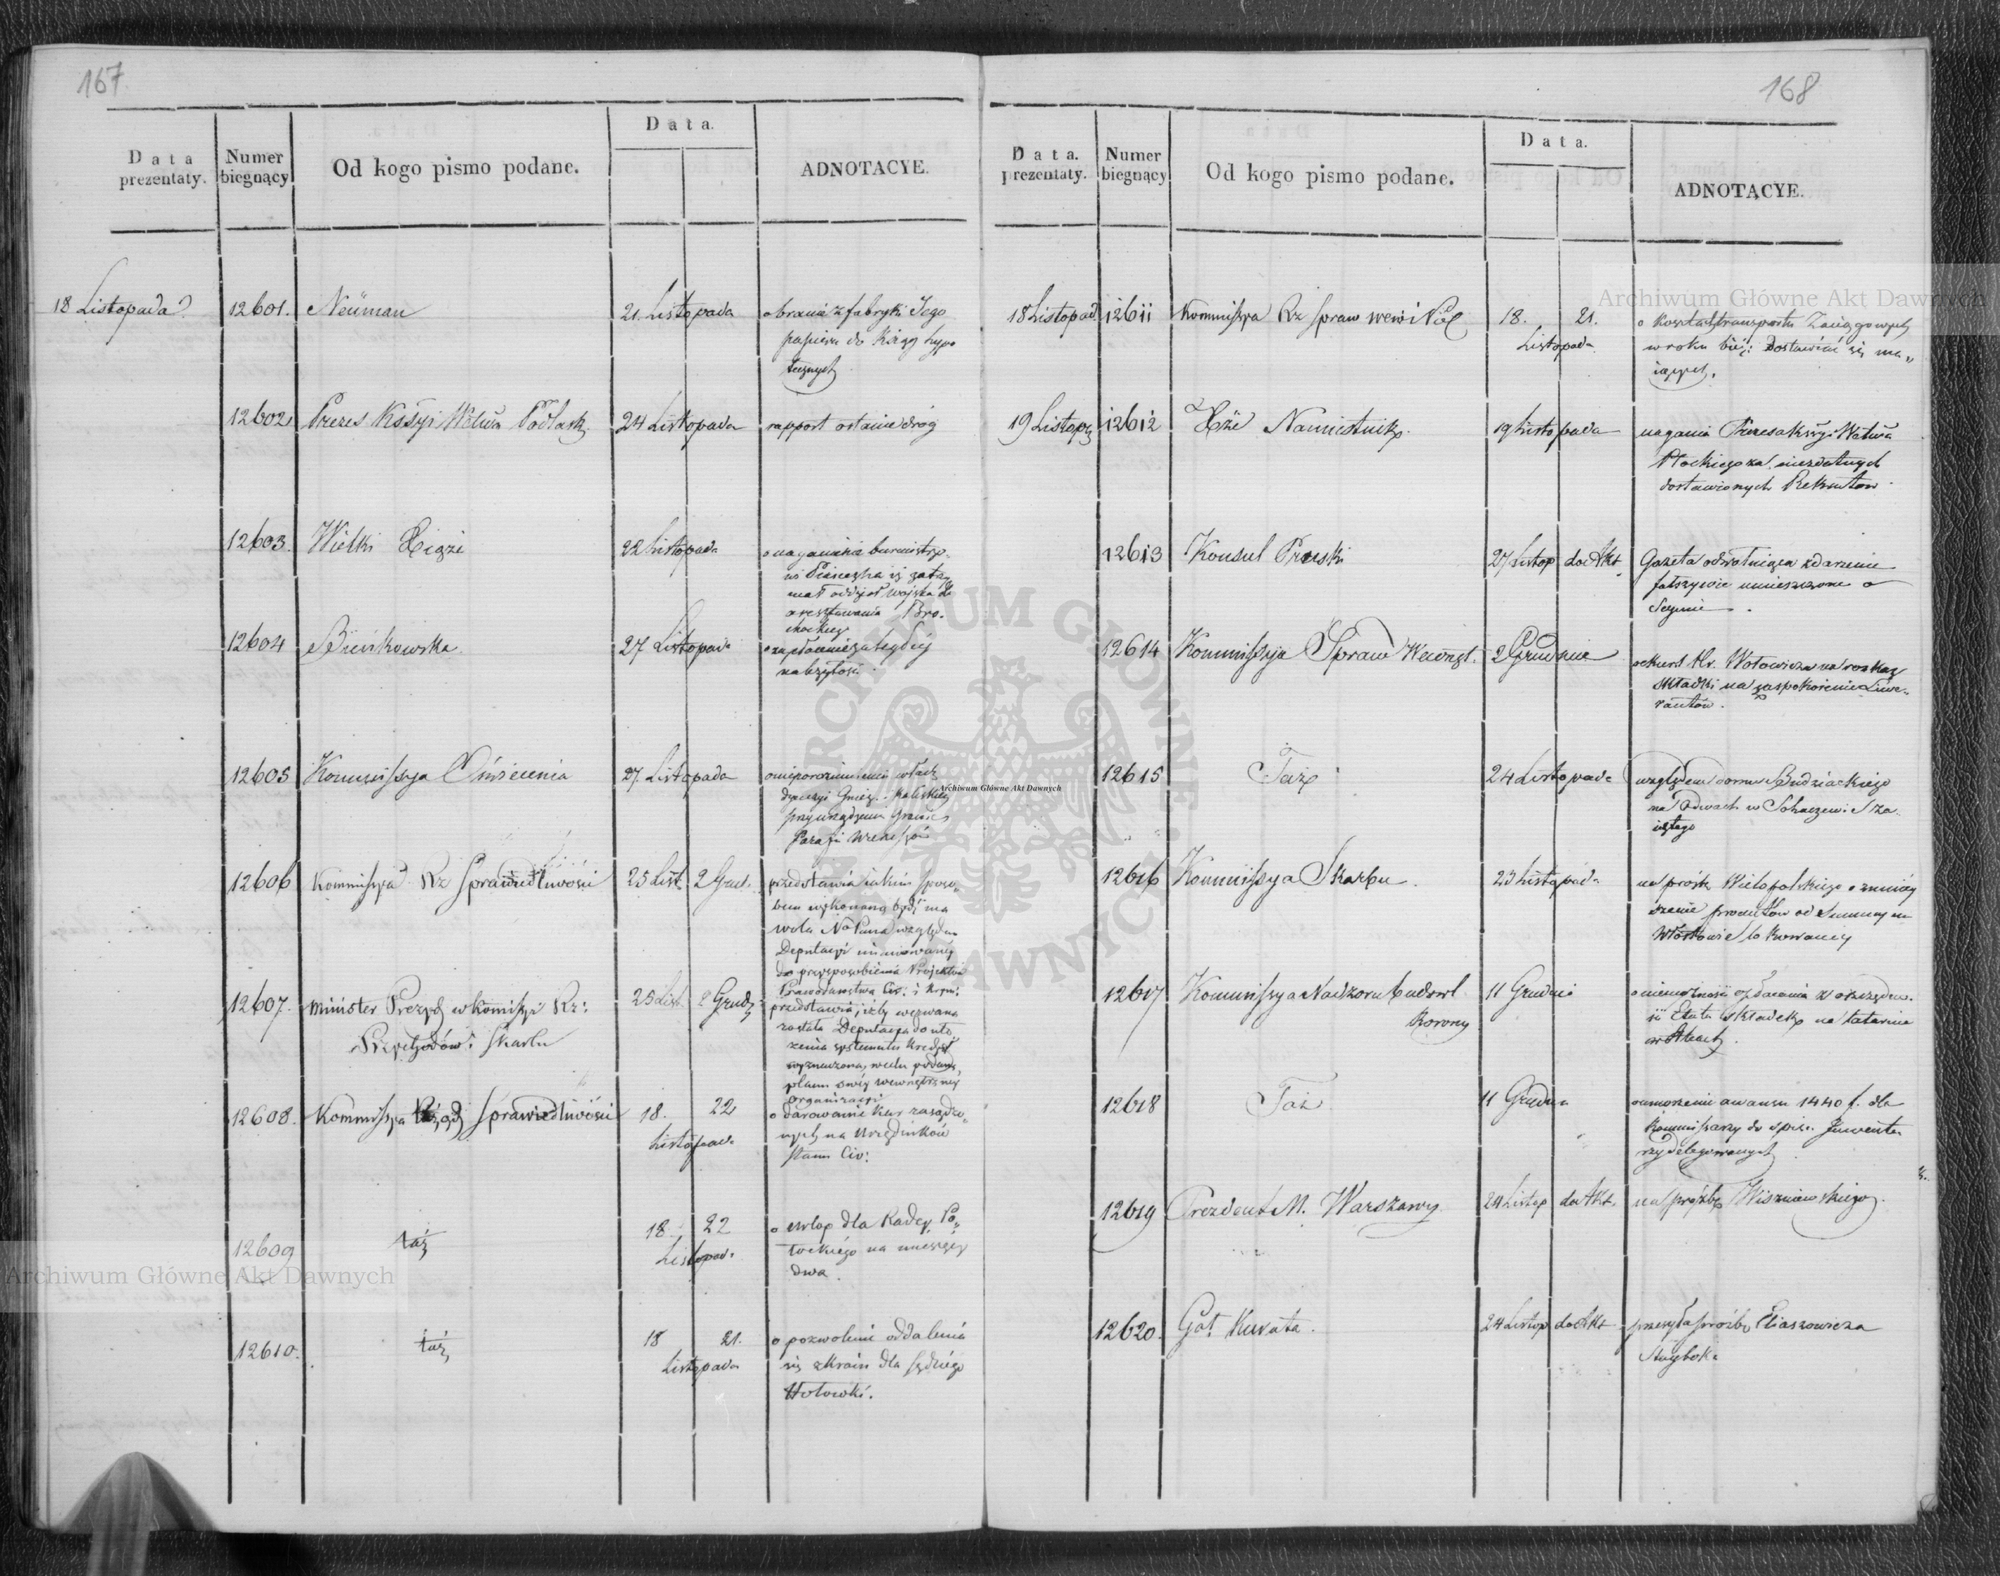 167
Data prezentaty.
Numer biegnący
Od kogo pismo podane.
Data.
ADNOTACYE.
18 Listopada
12601.
Neüman
21. Listopada
o brania z fabryki Jego
papieru do Xiąg hypo
tecznych
12602
Prezes Kssyi Wdtwa Podlask.
24 Listopada
rapport o stanie dróg
12603.
Wielki Xiąże
22 Listopada
o naganienie burmistrza
iż zatrzy
mał oddział wojska do
aresztowania Bro.
chockiego
12604
Bieńkowska
27 Listopad
należytości
12605
Kommissya Oświecenia
27. Listopada
o nieporozumieniu władz
dyecezyi Gniez. Kaliskiej
przy urządzeniu Granic
Parafii
12606
Kommissya Rz Sprawiedliwości
25 List. 2 Grud.
przedstawia jakim sposo-
bem wykonaną bydź ma
wola No Pana względem
Deputacyi mianowanej
do przysposobienia Projektów
Prawodawstwa Civ. i Krym:
12607.
Minister Prezyd w Komissyi Rz:
Przychodów i Skarbu
25 List. 2 Grudz
przedstawia, iżby wezwana
została Deputacya do uło
żenia systematu Kredyt
wyznaczona,
planu swéj wewnętrznej
organizacyi
12608.
Kommissya Rząd Sprawiedliwości
18. 22
Listopada
o darowanie kar zasądzo-
nych na Urzędników
stanu Civ:
12609
táż
18. 22
Listopad.
o urlop dla Radcy Po-
tockiego na miesięcy
dwa.
12610.
táż
18 21.
Listopada
o pozwolenie oddalenia
się z kraiu dla sędziego
Hołowki.
168
Data. prezentaty.
Numer biegnący
Od kogo pismo podane.
Data.
ADNOTACYE.
18 Listopad
12611
Kommissya Rz spraw wew i Pol
18. 21.
Listopada
o koszta transportu Zaciągowych
w roku bież: dostawiać się ma„
iących.
19 Listop
12612
Xże Namiestnik
19 Listopada
nagania Prezesa Kssyi Wdtwa
Płockiego za niezdatnych
dostawionych Rekrutów
12613
Konsul Pruski
27 Listop do Akt
Gazeta odwołuiąca zdarzenie
fałszywie umieszczone o
Seymie.
12614
Kommissya Spraw Wewnęt.
2 Grudnia
Hr. Wołowicza na rozkaz
składki na zaspokoienie Liwe-
rantów.
12615
Taż
24 Listopada
względem domu Budziackiego
na Odwach w Sochaczewie za
iętego
12616
Kommissya Skarbu
23 Listopada
na prośbę Wielopolskiego o zmniey
szenie procentów od Summy na
lokowaney
12617
Kommissya Nadzoru Budowl
Korony
11 Grudnia
o niemożności opłacania z oszczędno.
ści Etatu składek na latarnie
12618
Taż
11 Grudnia
o umorzenie awansu 1440 f. dla
Kommissarzy do spisu Inwenta
rzy delegowanych
12619
Prezdent M. Warszawy
24 Listop do Akt.
na prośbę Wiszniewskiego
12620.
Gał Kurata
24 Listop do Akt
przesyła prośbę Eliaszowicza
Archiwum Główne Akt Dawnych
Archiwum Główne Akt Dawnych
Archiwum Główne Akt Dawnych
ARCHIWUM GŁÓWNE AKT DAWNYCH